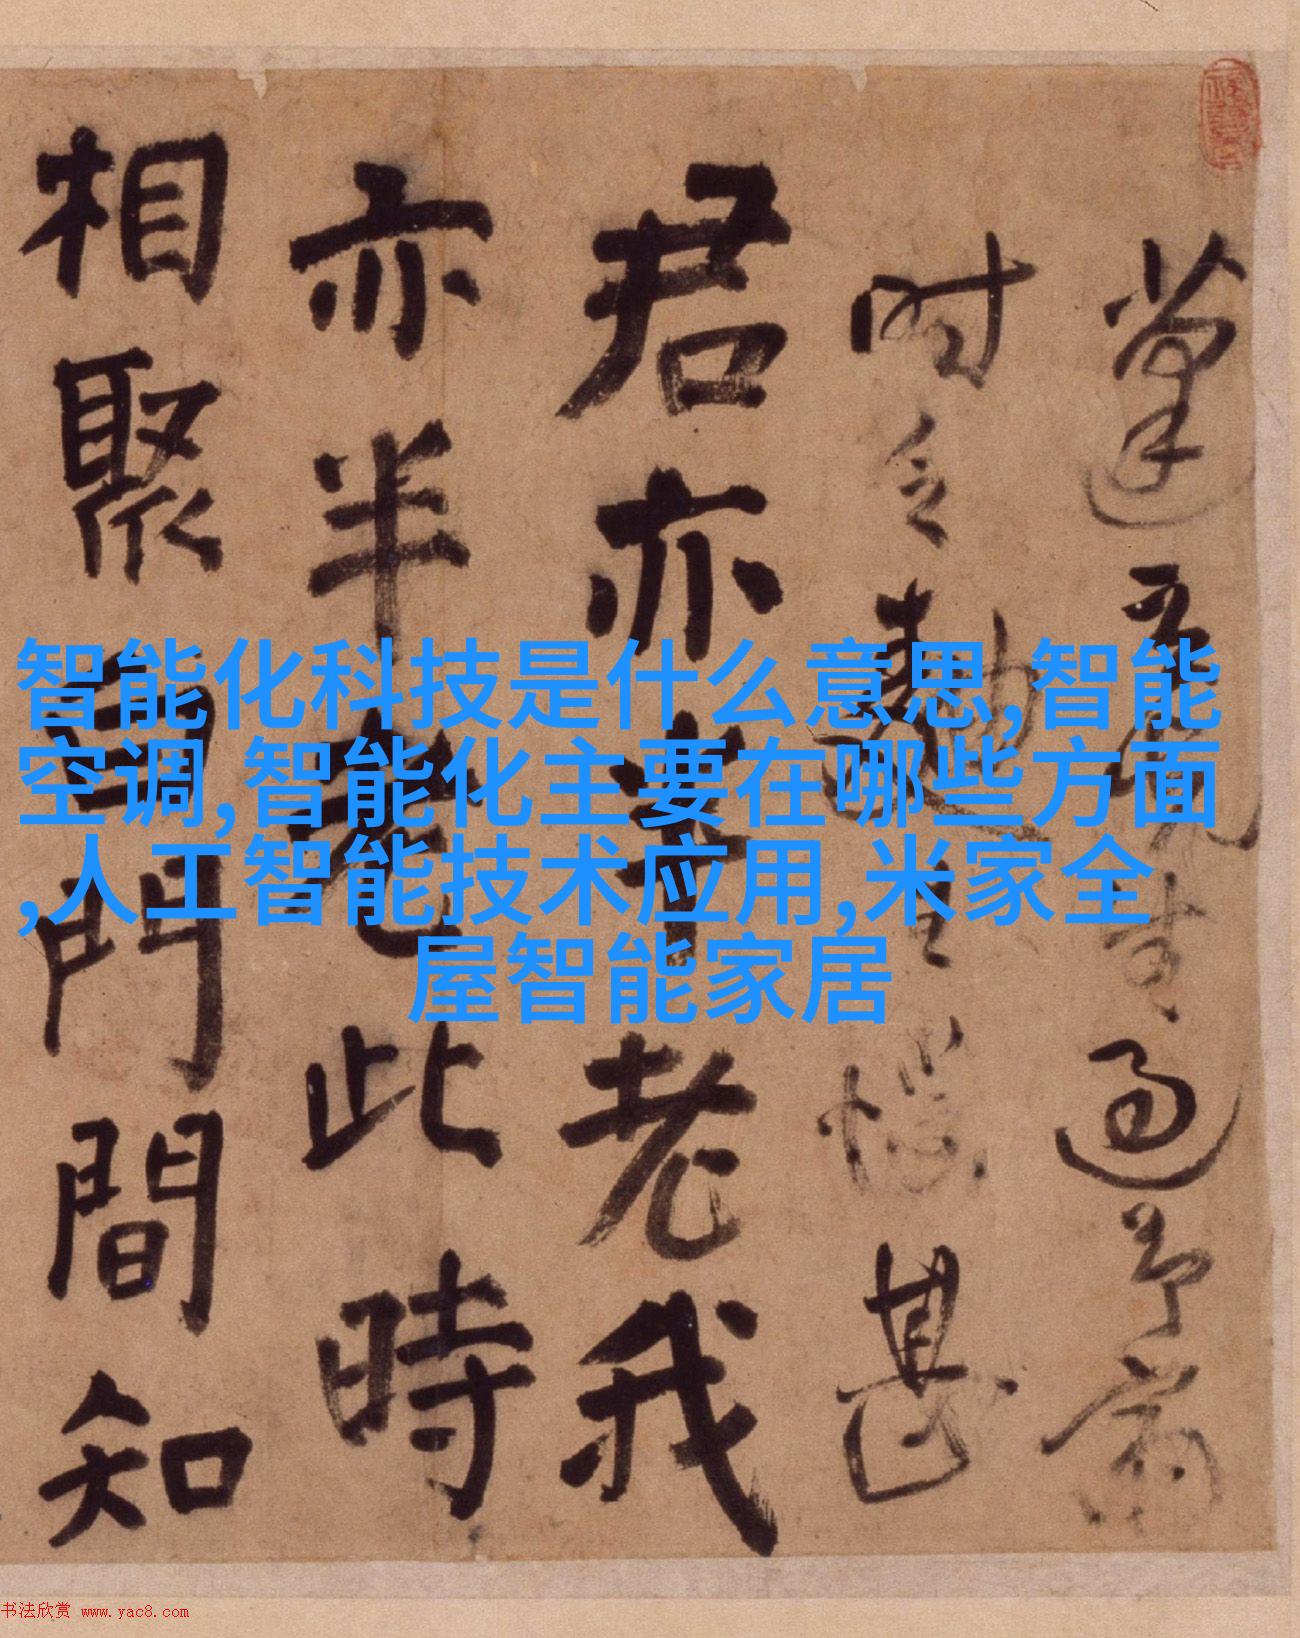 過予齋
甚
君亦半老我
亦半老此時
相聚白門間知
智能化科技是什么意思,智能
空调,智能化主要在哪些方面
,人工智能技术应用,米家全
屋智能家居
书法欣赏 www.yac8.com